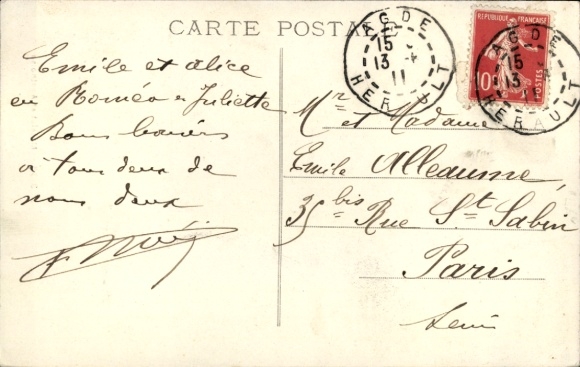 CARTE POSTALE
Emile et Alice
en Roméo & Juliette
Bons baisers
à tous deux de
nous deux
AGDE
15
13 - 4
11
HERAULT
REPUBLIQUE FRANÇAISE
10
POSTES
AGDE
15
13
11
HERAULT
Mr et Madame
Emile Alleaume,
35 bis Rue St Sabin
Paris
Seine